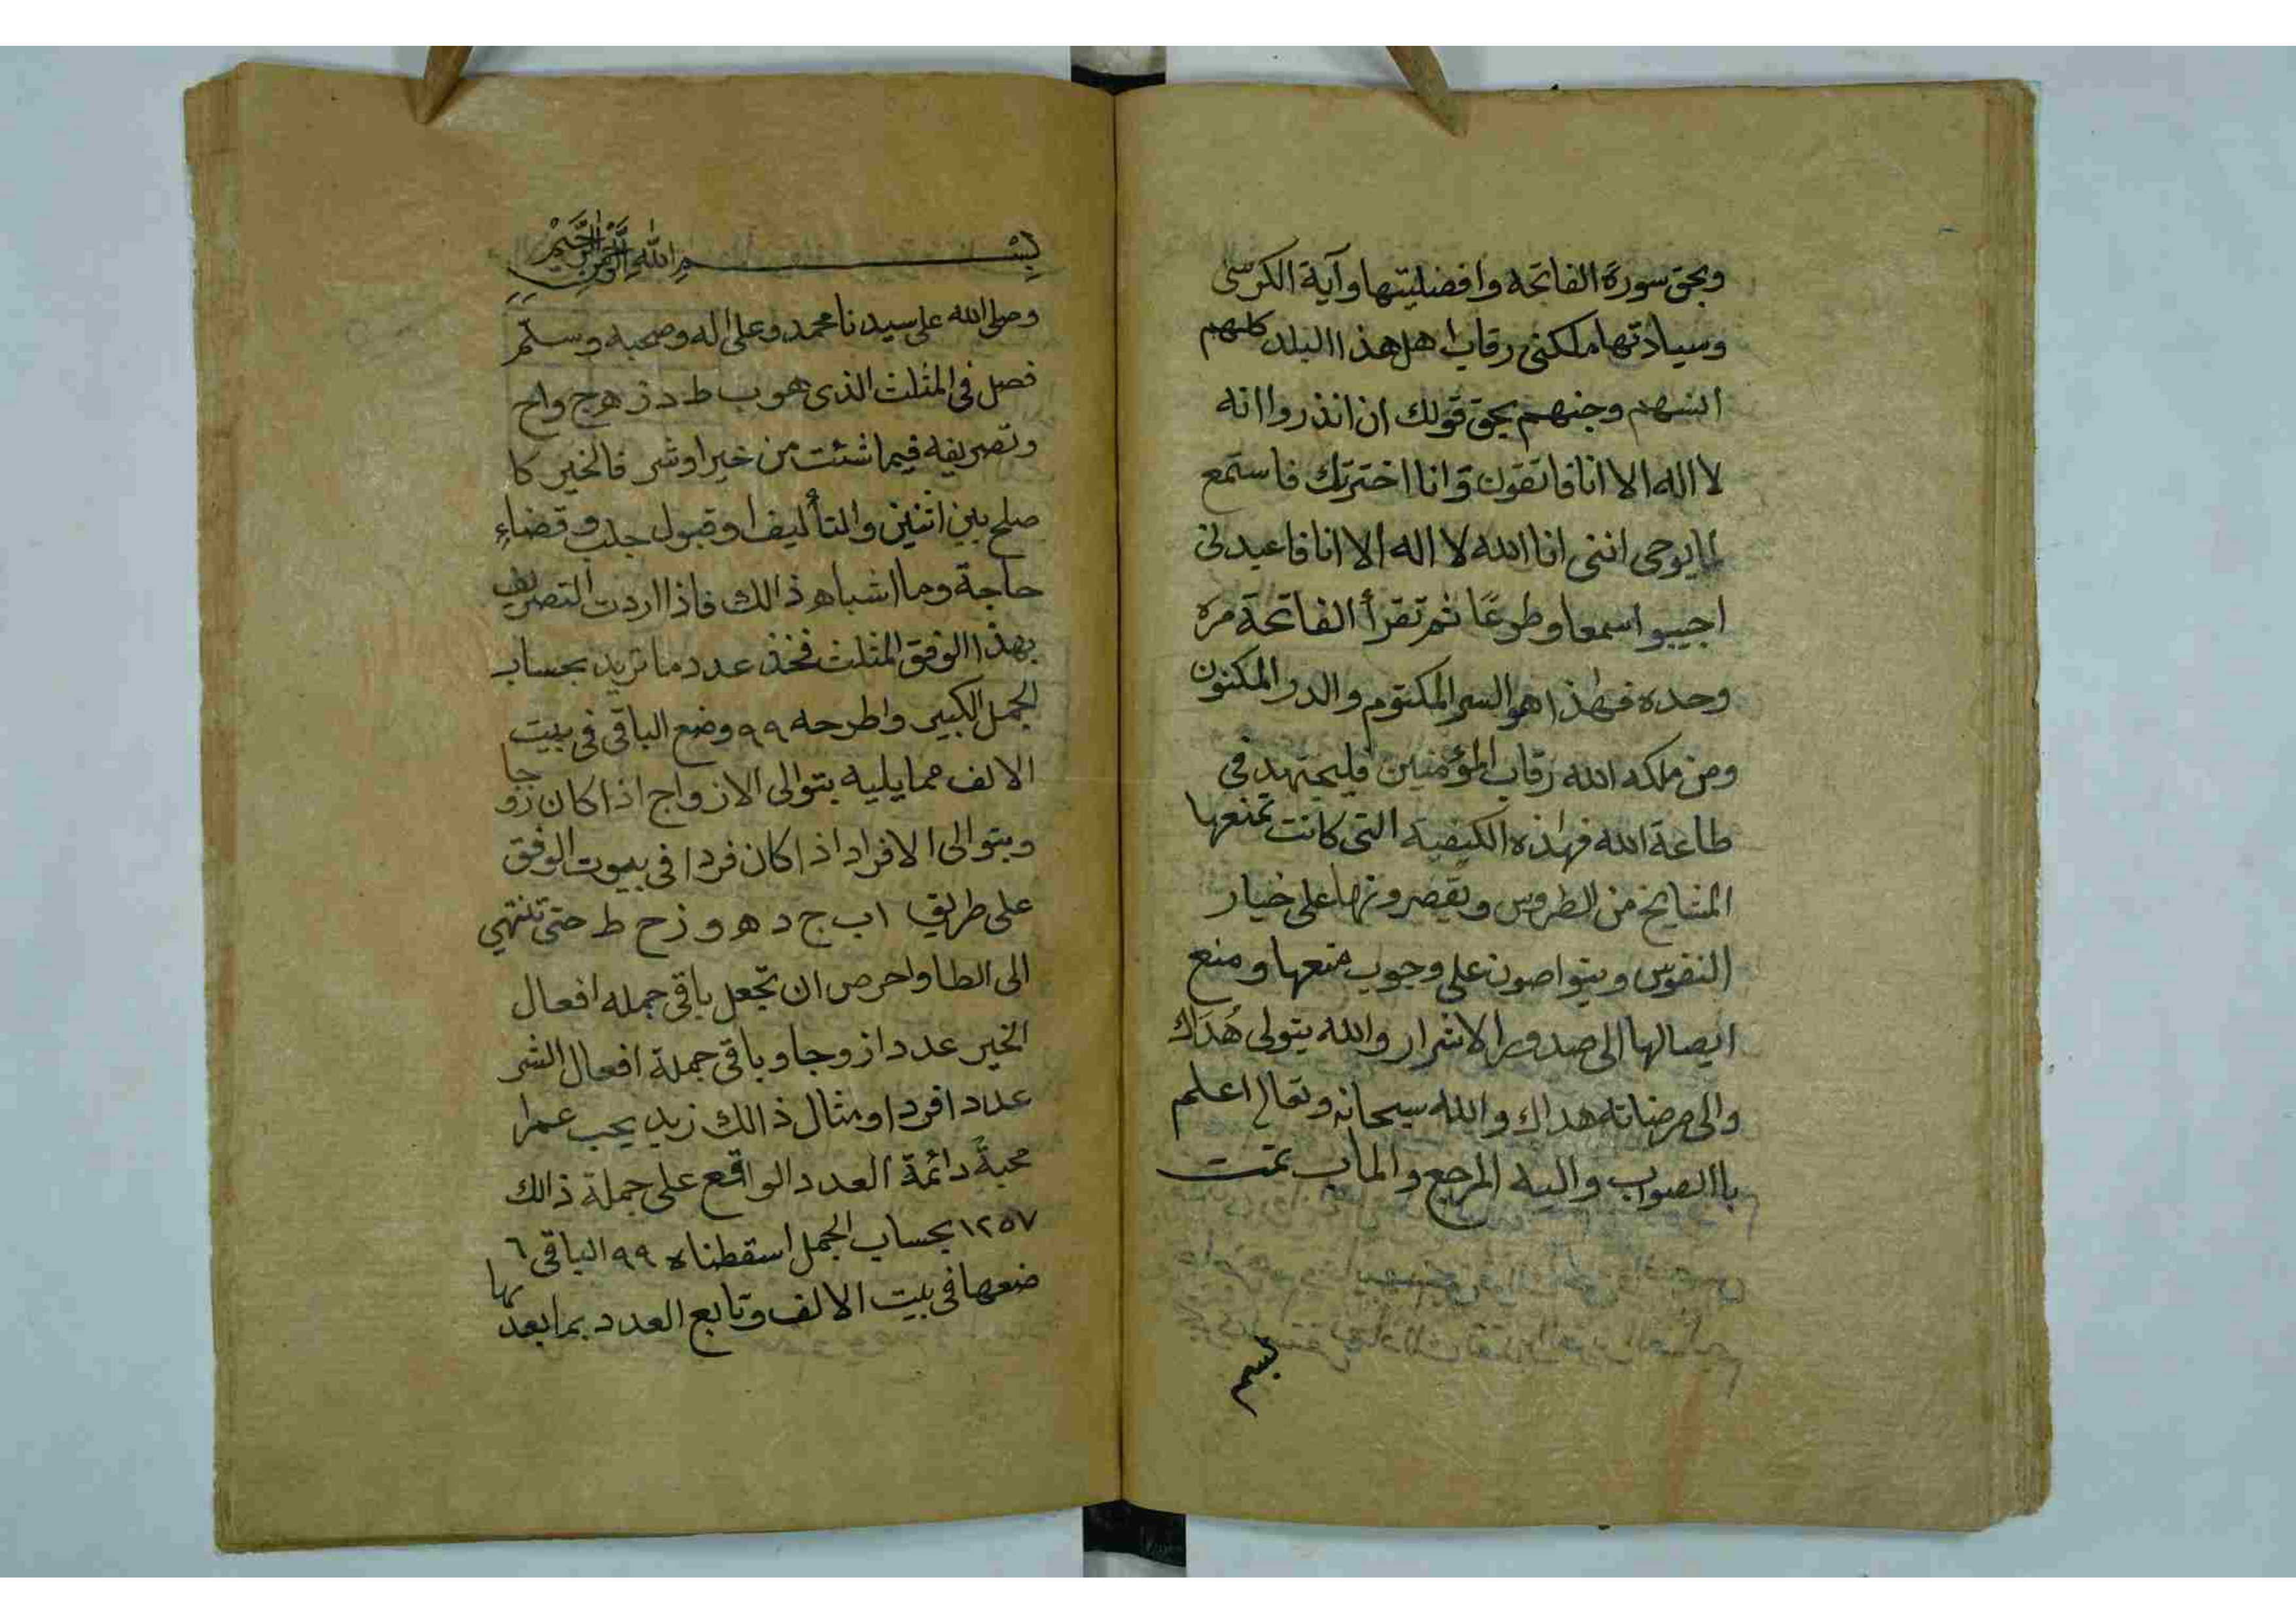 وبحق سورة الفاتحه وافضليتها وآية الكرسى
وسيادتها ملكنى رقاب اهل هذا البلد كلهم
انسهم وجنهم بحق قولك ان انذروا انه
لا اله الا انا فاتقون وانا اخترتك فاستمع
لما يوحى اننى انا الله لا اله الا انا فاعبدنى
اجيبوا سمعا وطوعًا ثم تقرأ الفاتحة مرة
وحده فهٰذا هو السر المكتوم والدر المكنون
ومن ملكه الله رقاب المؤمنين فليجتهد فى
طاعة الله فهٰذه الكيفية التى كانت تمنعها
المشايخ من الطروس ويقصرونها على خيار
النفوس ويتواصون على وجوب منعها ومنع
ايصالها الى صدور الاشرار والله يتولى هُدَاك
والى مرضاته هداك والله سبحانه وتعالى اعلم
باالصواب واليه المرجع والماب تمت
بسم
بِسْمِ اللهِ الرَّحْمٰنِ الرَّحِيْمِ
وصلى الله على سيدنا محمد وعلى اله وصحبه وسلّم
فصل فى المثلث الذى هو ب ط د ز ه ج و ا ح
وتصريفه فيما شئت من خير او شر فالخير كا
صلح بين اثنين والتأليف او قبول جلب وقضاءِ
حاجة وما اشباه ذالك فاذا اردت التصريف
بهذا الوفق المثلث فخذ عدد ما تريد بحساب
الجمل الكبير واطرحه ٩٩ وضع الباقى فى بييت
الالف مما يليه بتوالى الازواج اذا كان زوجا
وبتوالى الافراد اذا كان فردا فى بيوت الوفق
على طريق ا ب ج د ه و ز ح ط حتى تنتهي
الى الطا واحرص ان تجعل باقى جمله افعال
الخير عددا زوجا وباقى جملة افعال الشر
عددا فردا ومثال ذالك زيد يحب عمرا
محبةً دائمة العدد الواقع على جملة ذالك
١٢٥٧ بحساب الجمل اسقطناه ٩٩ الباقى ٦
ضعها فى بييت الالف وتابع العدد بما بعدها